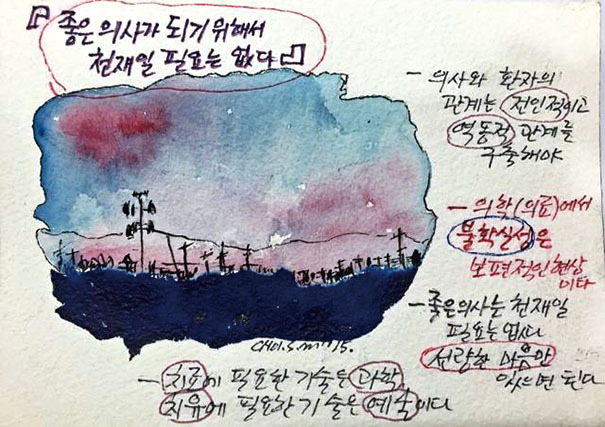 『좋은 의사가 되기 위해서
천재일 필요는 없다』
- 의사와 환자의
관계는 전인적이고
역동적 관계를
구축해야
- 의학(의료)에서
불확실성은
보편적인 현상
이다
- 좋은 의사는 천재일
필요는 없다
선량한 마음만
있으면 된다
CHOI.S.M '15.
- 치료에 필요한 기술은 과학,
치유에 필요한 기술은 예술이다